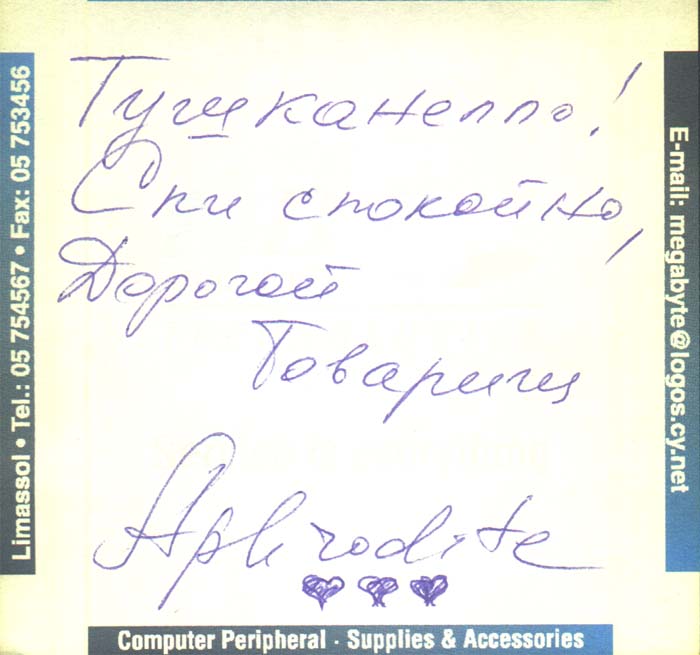 Тушканелло!
Спи спокойно,
Дорогой
Товарищ
Aphrodite
Limassol • Tel.: 05 754567 • Fax: 05 753456
E-mail: megabyte@logos.cy.net
Computer Peripheral - Supplies & Accessories